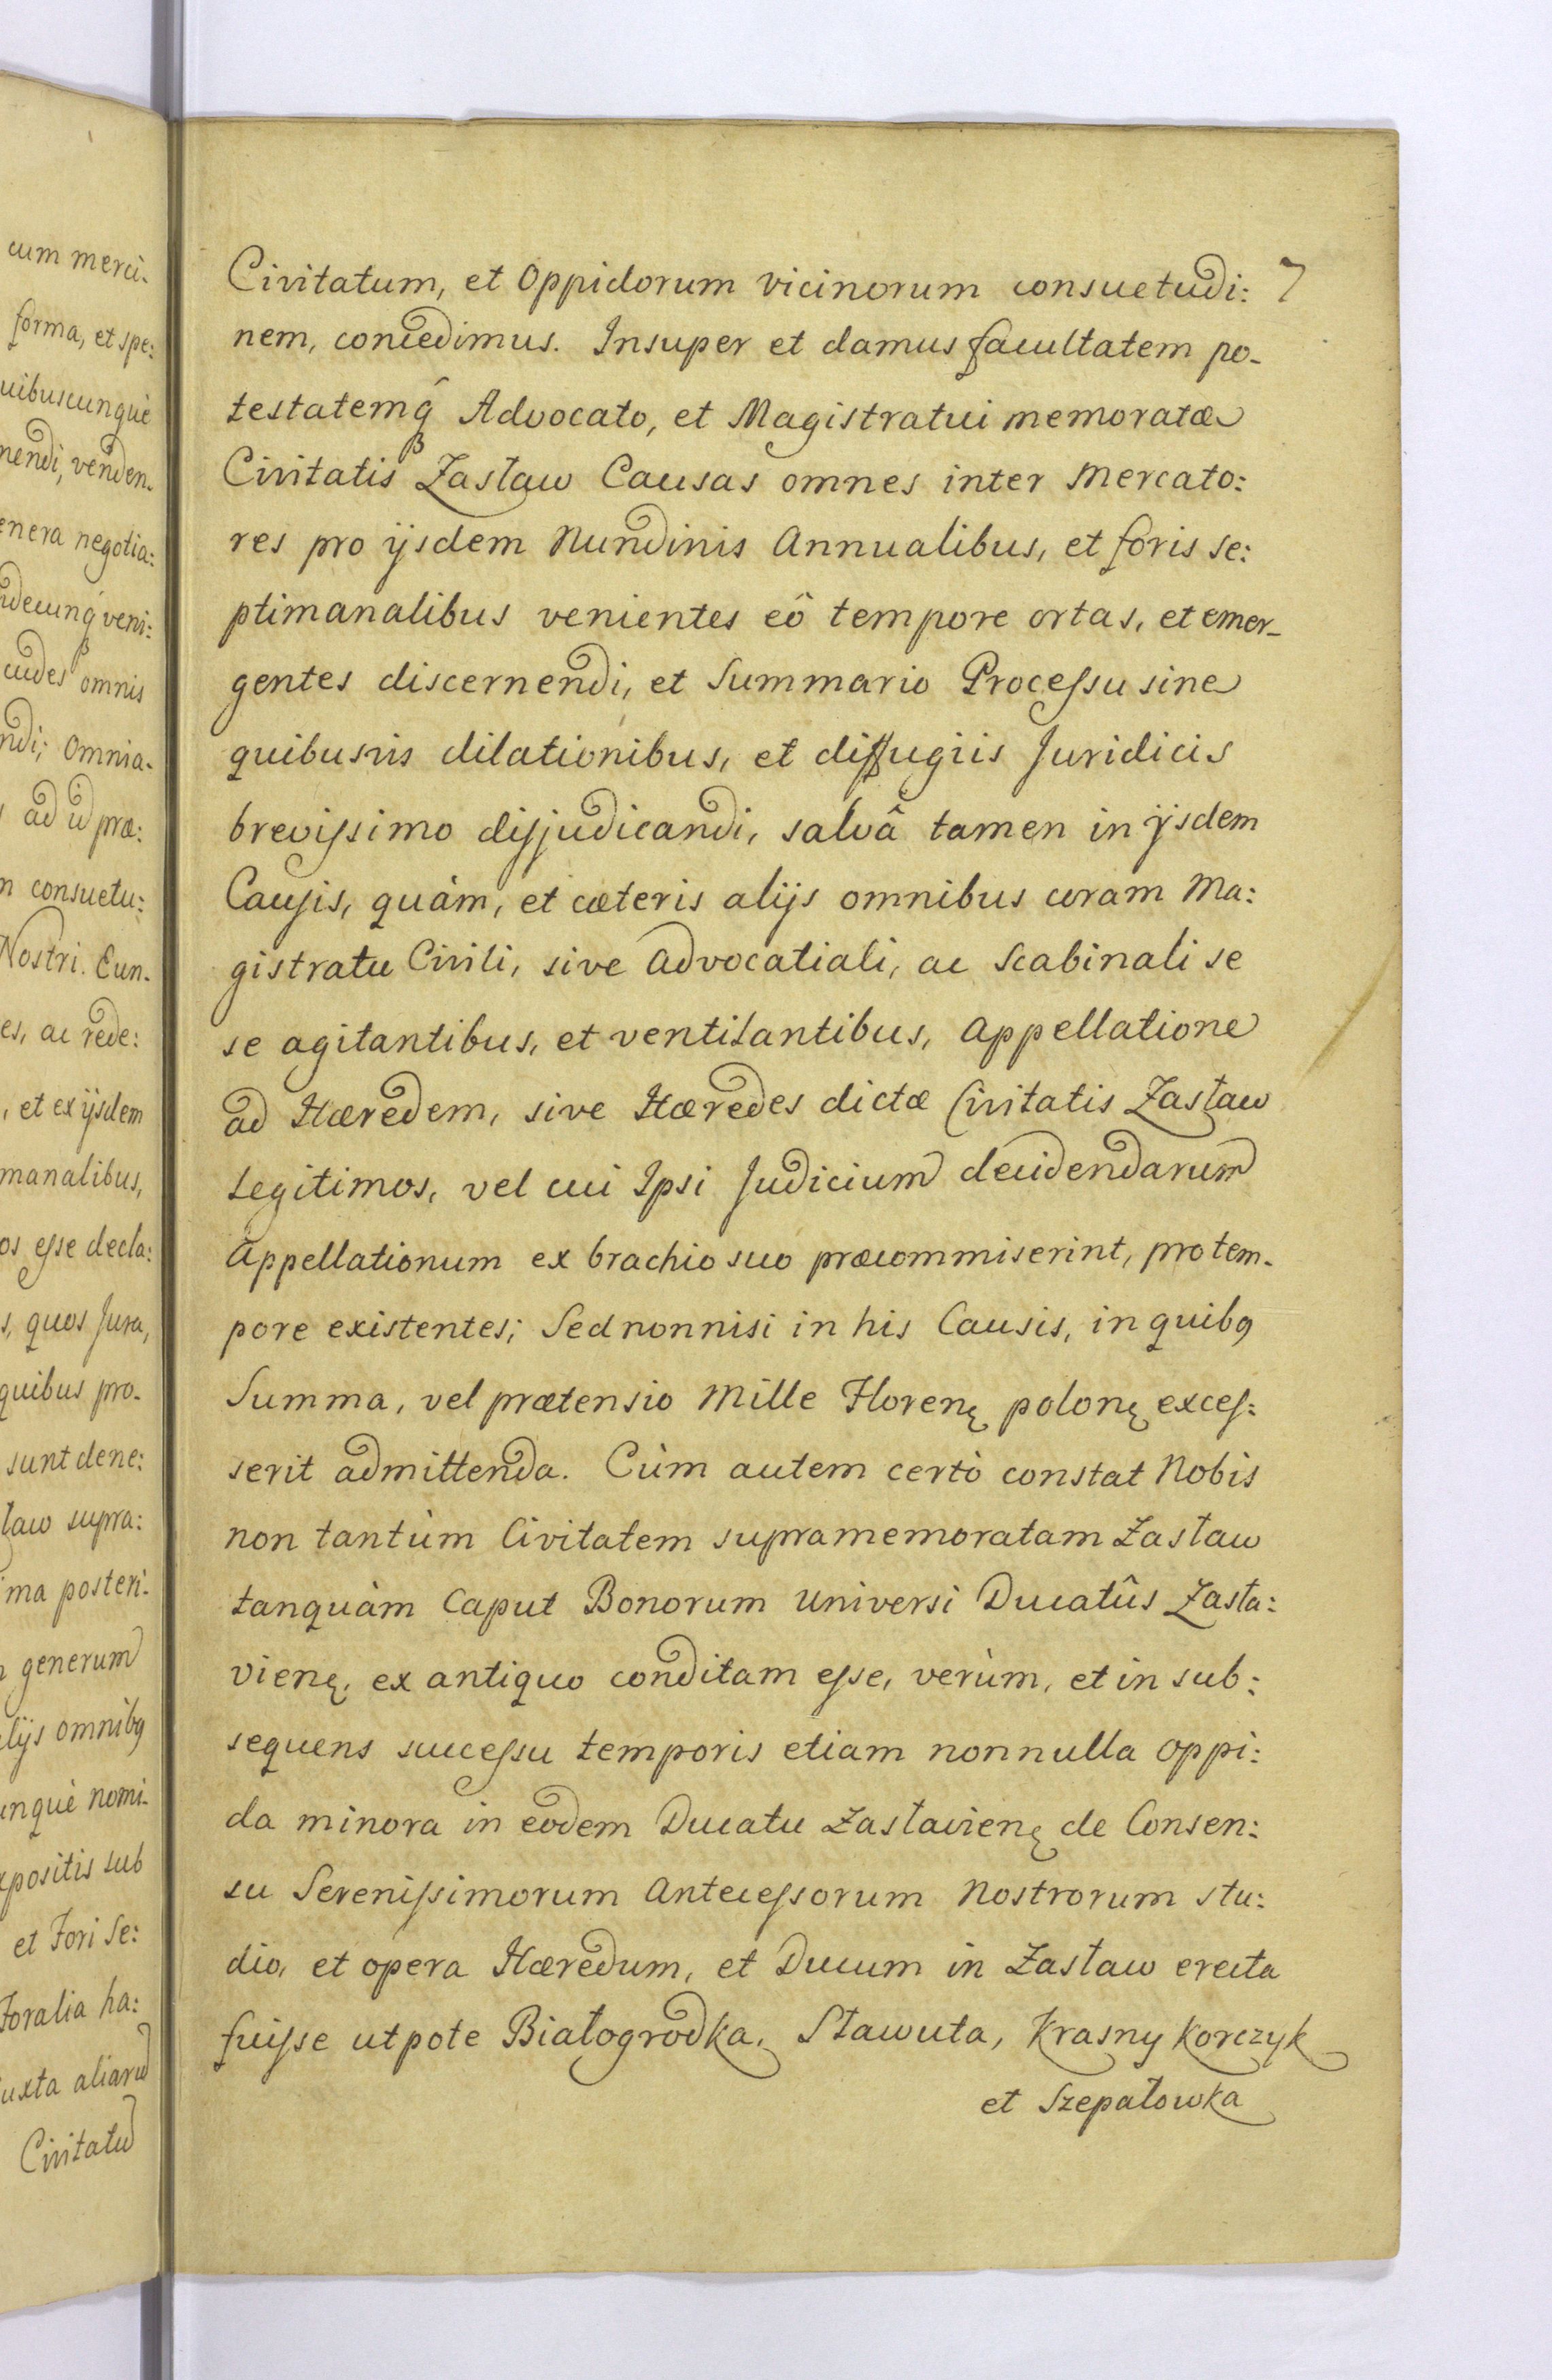 cum merci-
forma, et spe:
uibuscunquè
nendi, venden-
enera negotia:
ndecunq́ veni:
cudes omnis
ndi; Omnia-
ad id præ:
n consuetu:
Nostri. Eun-
es, ac rede:
, et ex ijsdem
manalibus,
os esse decla:
s, quos Jura,
quibus pro-
sunt dene:
ław supra:
ma posteri-
generum
alijs omnibꝯ
unquè nomi-
xpositis sub
et Fori Se:
Foralia ha:
iuxta aliarū
Civitatū
Civitatum, et Oppidorum vicinorum consuetudi: 7
nem, concedimus. Insuper et damus facultatem po-
testatemq́ Advocato, et Magistratui memoratæ
Civitatis Zasław Causas omnes inter Mercato:
res pro ijsdem Nundinis Annualibus, et foris se:
ptimanalibus venientes eô tempore ortas, et emer-
gentes discernendi, et Summario Processu sine
quibusvis dilationibus, et diffugiis Juridicis
brevissimo disjudicandi, salvâ tamen in ijsdem
Causis, quàm, et cæteris alijs omnibus coram Ma:
gistratu Civili, sive Advocatiali, ac Scabinali se
se agitantibus, et ventilantibus, Appellatione
ad Hæredem, sive Hæredes dictæ Civitatis Zasław
Legitimos, vel cui Ipsi Judicium decidendarum
Appellationum ex brachio suo præcommiserint, pro tem-
pore existentes; Sed nonnisi in his Causis, in quibꝯ
Summa, vel prætensio Mille Florenę polonę exces:
serit admittenda. Cùm autem certò constat Nobis
non tantùm Civitatem supramemoratam Zasław
tanquàm Caput Bonorum Universi Ducatûs Zasła:
vienę, ex antiquo conditam esse, verùm, et in sub:
sequens successu temporis etiam nonnulla Oppi:
da minora in eodem Ducatu Zasłavienę de Consen:
su Serenissimorum Antecessorum Nostrorum stu:
dio, et opera Hæredum, et Ducum in Zasław erecta
fuisse utpote Białogrodka, Sławuta, Krasny Korczyk
et Szepatowka